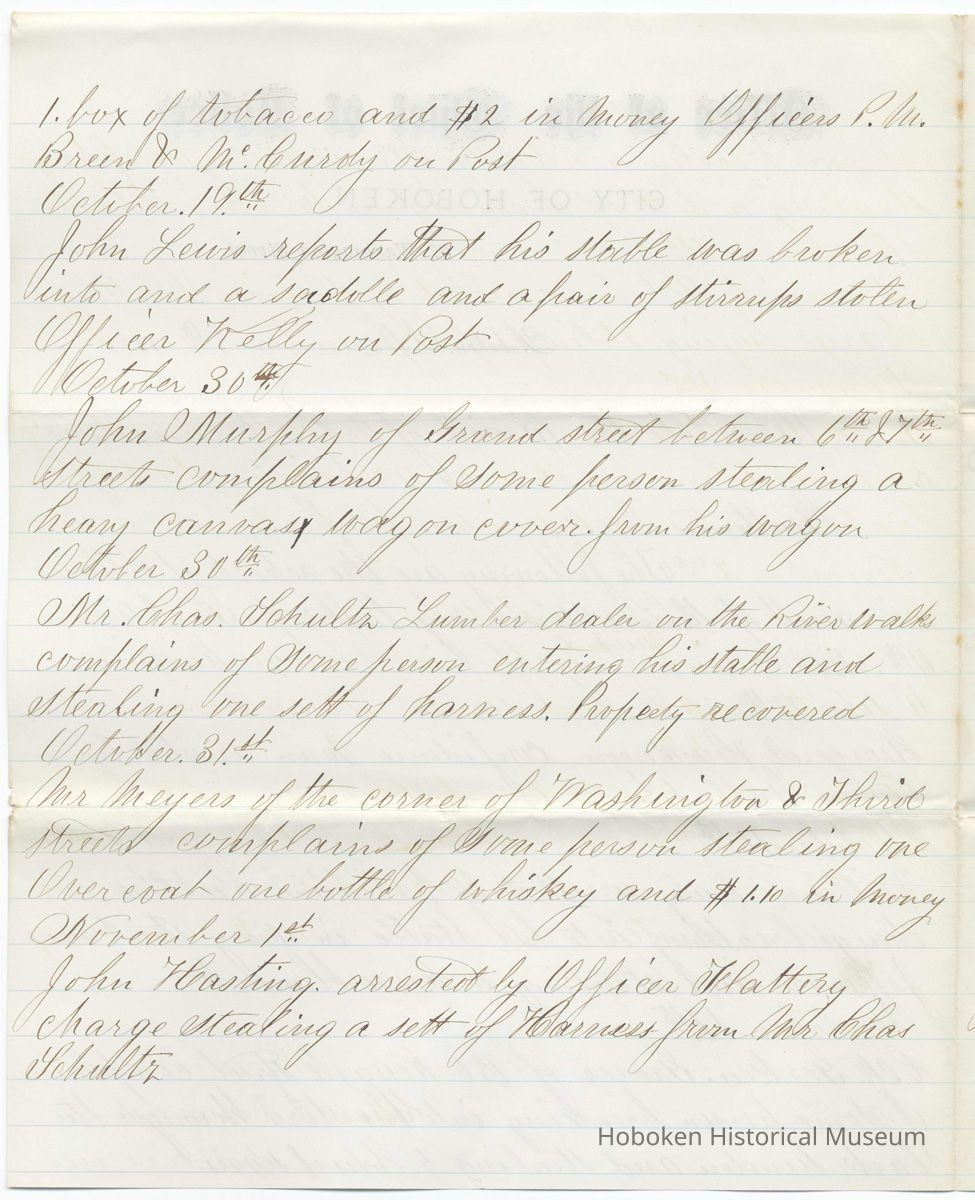 1. box of tobacco and $2 in Money Officers P. M.
Breen & Mc. Curdy on Post
October. 19th
John Lewis reports that his stable was broken
into and a saddle and a pair of stirrups stolen
Officer Kelly on Post
October 30th
John Murphy of Grand street between 6th & 7th
streets complains of some person stealing a
heavy canvas wagon cover. from his wagon
October 30th
Mr. Chas. Schultz Lumber dealer on the River walks
complains of some person entering his stable and
stealing one sett of harness. Property recovered
October. 31st
Mr Meyers of the corner of Washington & Third
streets complains of some person stealing one
Over coat one bottle of whiskey and $1.10 in Money
November 1st
John Hasting. arrested by Officer Flattery
charge stealing a sett of Harness from Mr Chas
Schultz
Hoboken Historical Museum